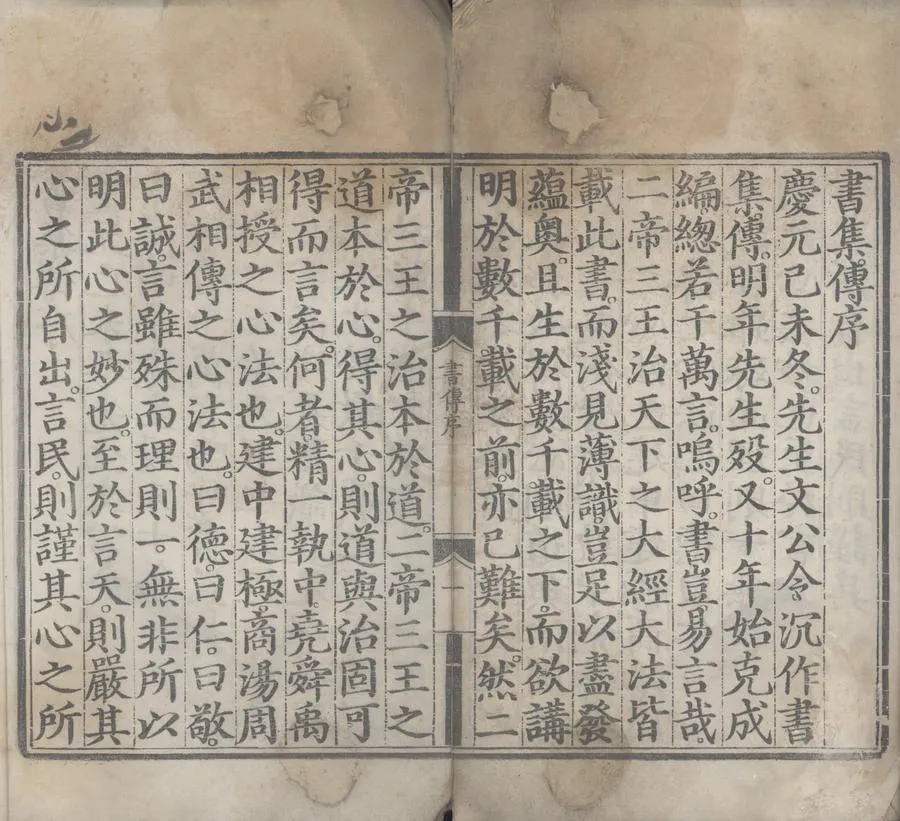 書集傳序
慶元己未冬。先生文公令沉作書
集傳。明年先生歿。又十年始克成
編。總若干萬言。嗚呼。書豈易言哉。
二帝三王治天下之大經大法皆
載此書。而淺見薄識。豈足以盡發
蘊奧。且生於數千載之下。而欲講
明於數千載之前。亦已難矣。然二
書傳序
一
帝三王之治本於道。二帝三王之
道本於心。得其心。則道與治固可
得而言矣。何者。精一執中。堯舜禹
相授之心法也。建中建極。商湯周
武相傳之心法也。曰德。曰仁。曰敬。
曰誠。言雖殊而理則一。無非所以
明此心之妙也。至於言天。則嚴其
心之所自出。言民。則謹其心之所